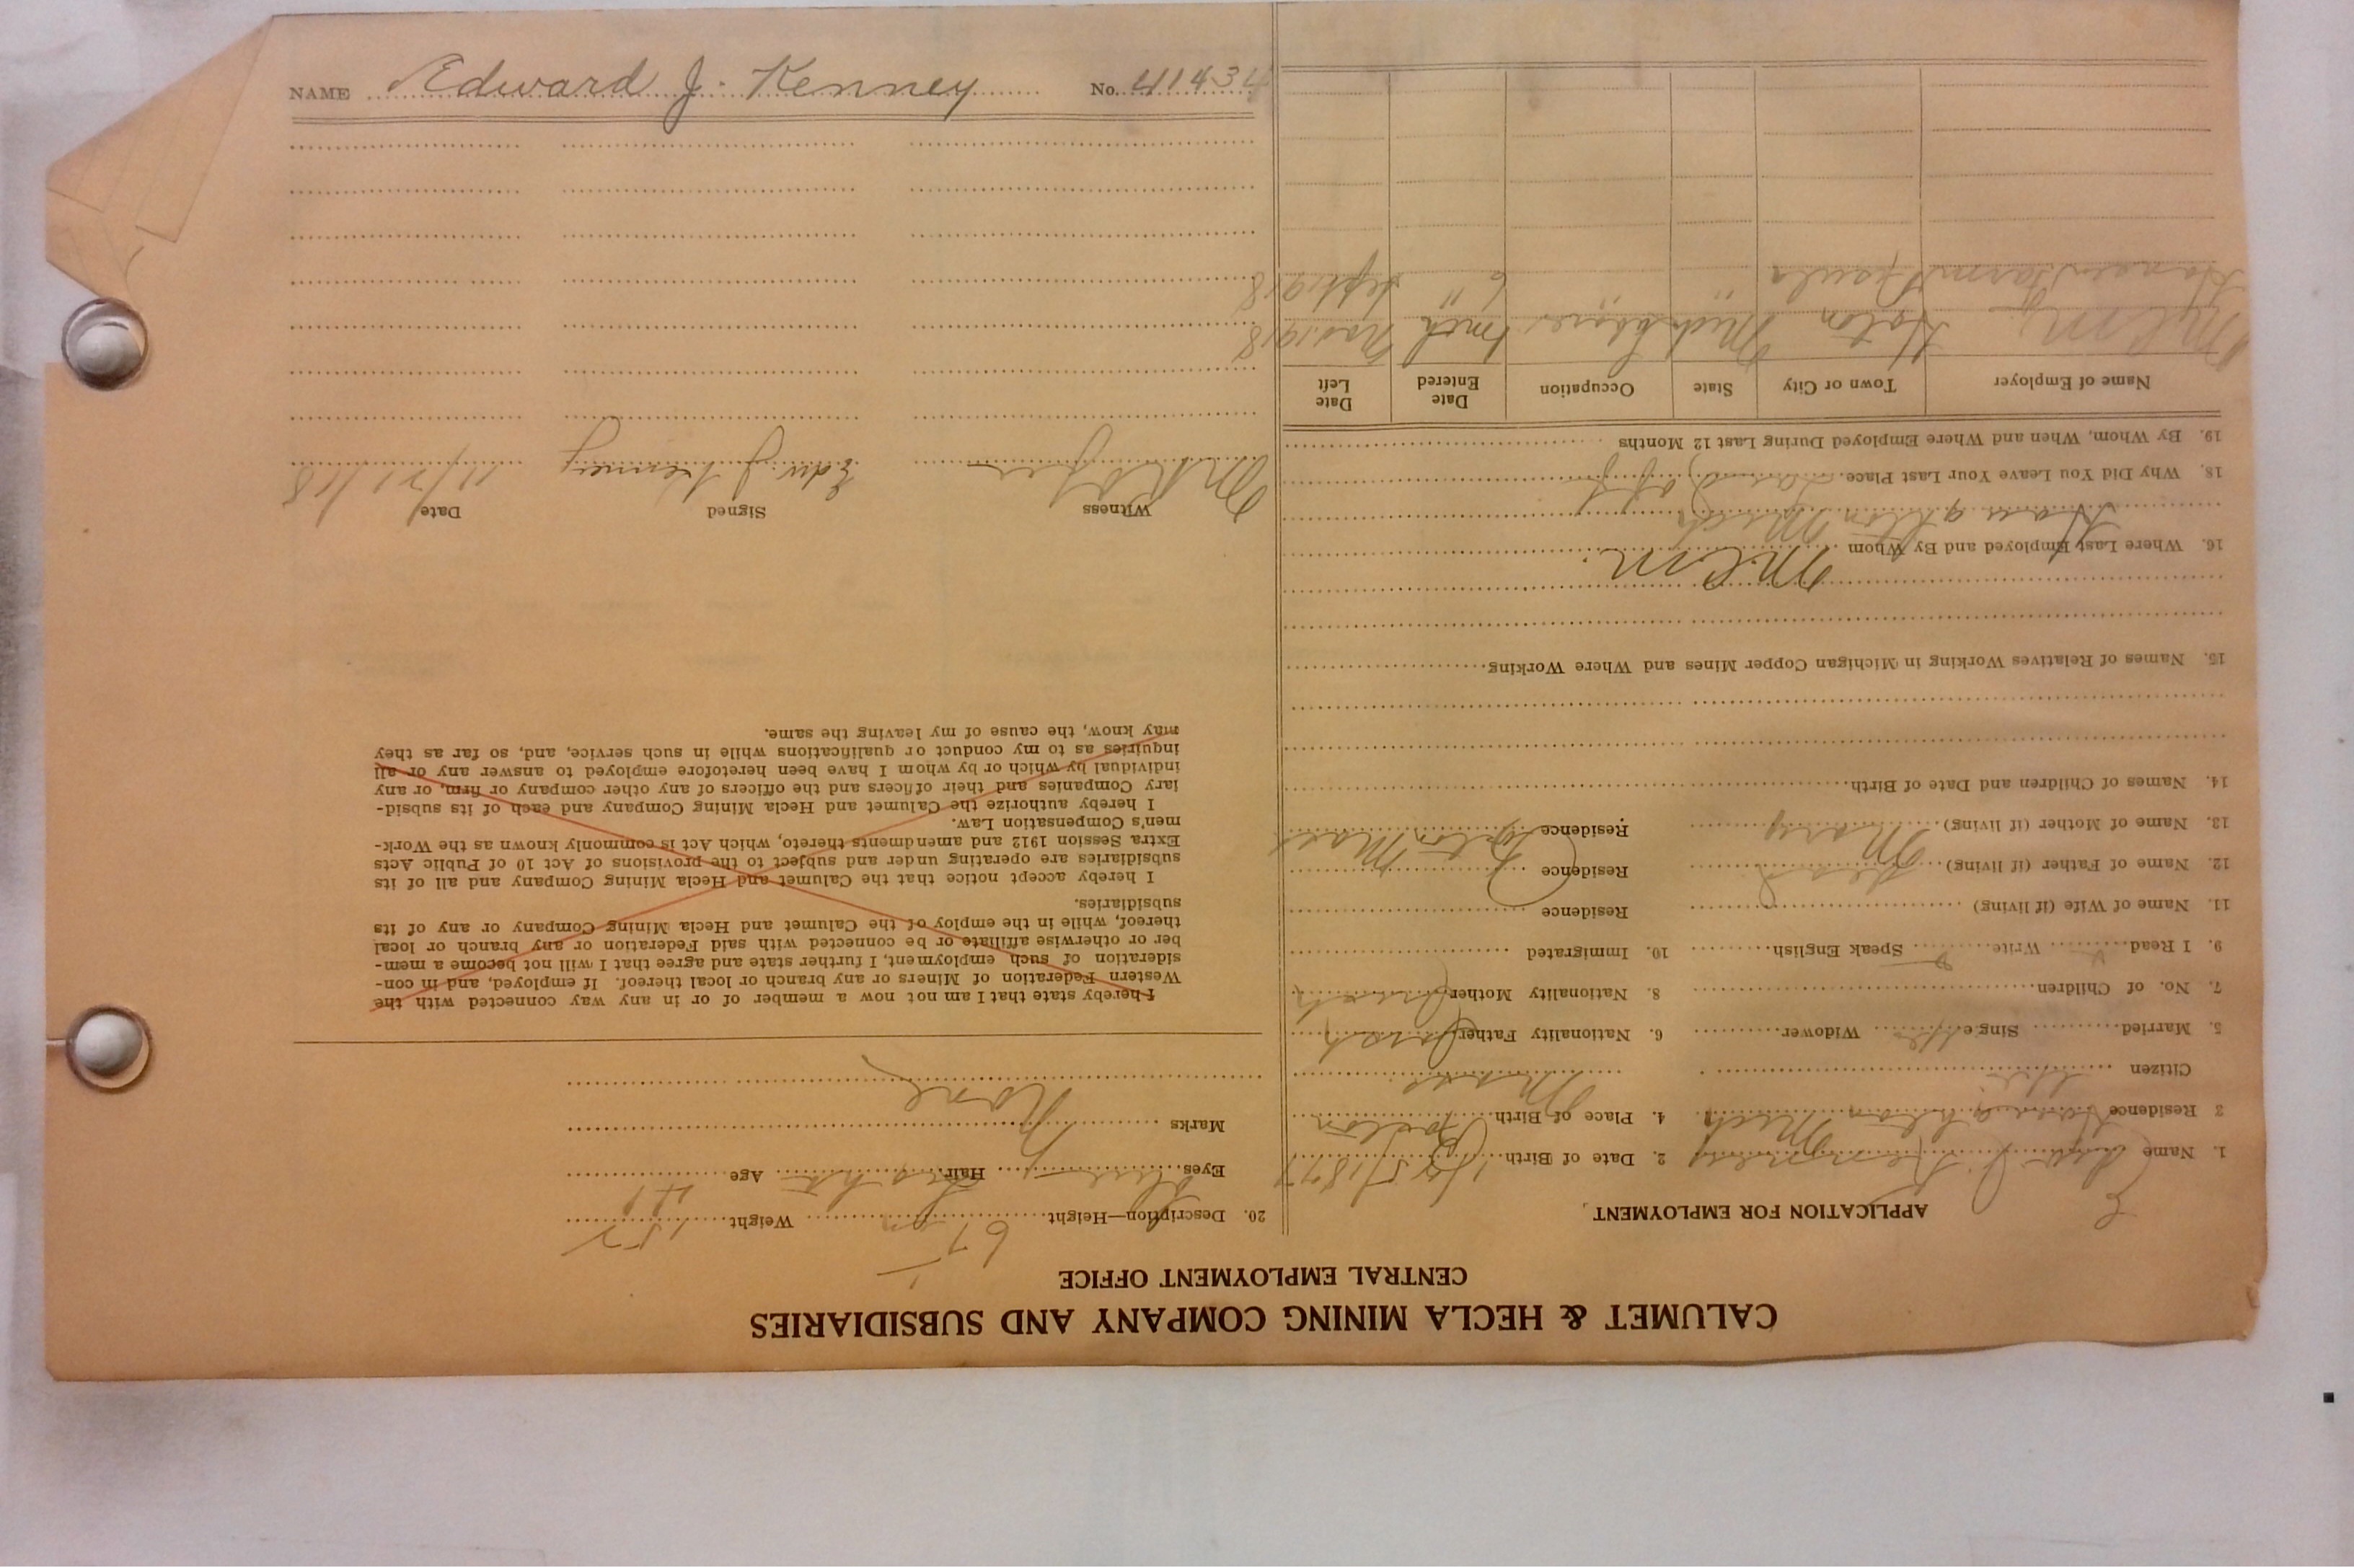 NAME Edward J. Kenney No. 41434
CALUMET & HECLA MINING COMPANY AND SUBSIDIARIES
CENTRAL EMPLOYMENT OFFICE
APPLICATION FOR EMPLOYMENT
1. Name Edw J Kenney 2. Date of Birth 1877
3 Residence Houghton Mich 4. Place of Birth Boston
Mass
Citizen Yes
5. Married Single Yes Widower 6. Nationality Father Irish
7. No. of Children 8. Nationality Mother Irish
9. I Read Write Speak English 10. Immigrated
11. Name of Wife (if living) Residence
12. Name of Father (if living) Dead Residence
13. Name of Mother (if living) Mary Residence Boston Mass
14. Names of Children and Date of Birth
15. Names of Relatives Working in Michigan Copper Mines and Where Working
M.C.M.
16. Where Last Employed and By Whom
Houghton Mich
18. Why Did You Leave Your Last Place Laid off
19. By Whom, When and Where Employed During Last 12 Months
Name of Employer Town or City State Occupation Date Entered Date Left
M.C.M. Hoton Mich Nov. 1918
Farm " " Sept 1918
20. Description—Height 67 in Weight 157
Eyes Blue Hair Age 41
Marks None
I hereby state that I am not now a member of or in any way connected with the
Western Federation of Miners or any branch or local thereof. If employed, and in con-
sideration of such employment, I further state and agree that I will not become a mem-
ber or otherwise affiliate or be connected with said Federation or any branch or local
thereof, while in the employ of the Calumet and Hecla Mining Company or any of its
subsidiaries.
I hereby accept notice that the Calumet and Hecla Mining Company and all of its
subsidiaries are operating under and subject to the provisions of Act 10 of Public Acts
Extra Session 1912 and amendments thereto, which Act is commonly known as the Work-
men's Compensation Law.
I hereby authorize the Calumet and Hecla Mining Company and each of its subsid-
iary Companies and their officers and the officers of any other company or firm, or any
individual by which or by whom I have been heretofore employed to answer any or all
inquiries as to my conduct or qualifications while in such service, and, so far as they
may know, the cause of my leaving the same.
Witness Signed Date
Edw. J. Kenney 11/21/18